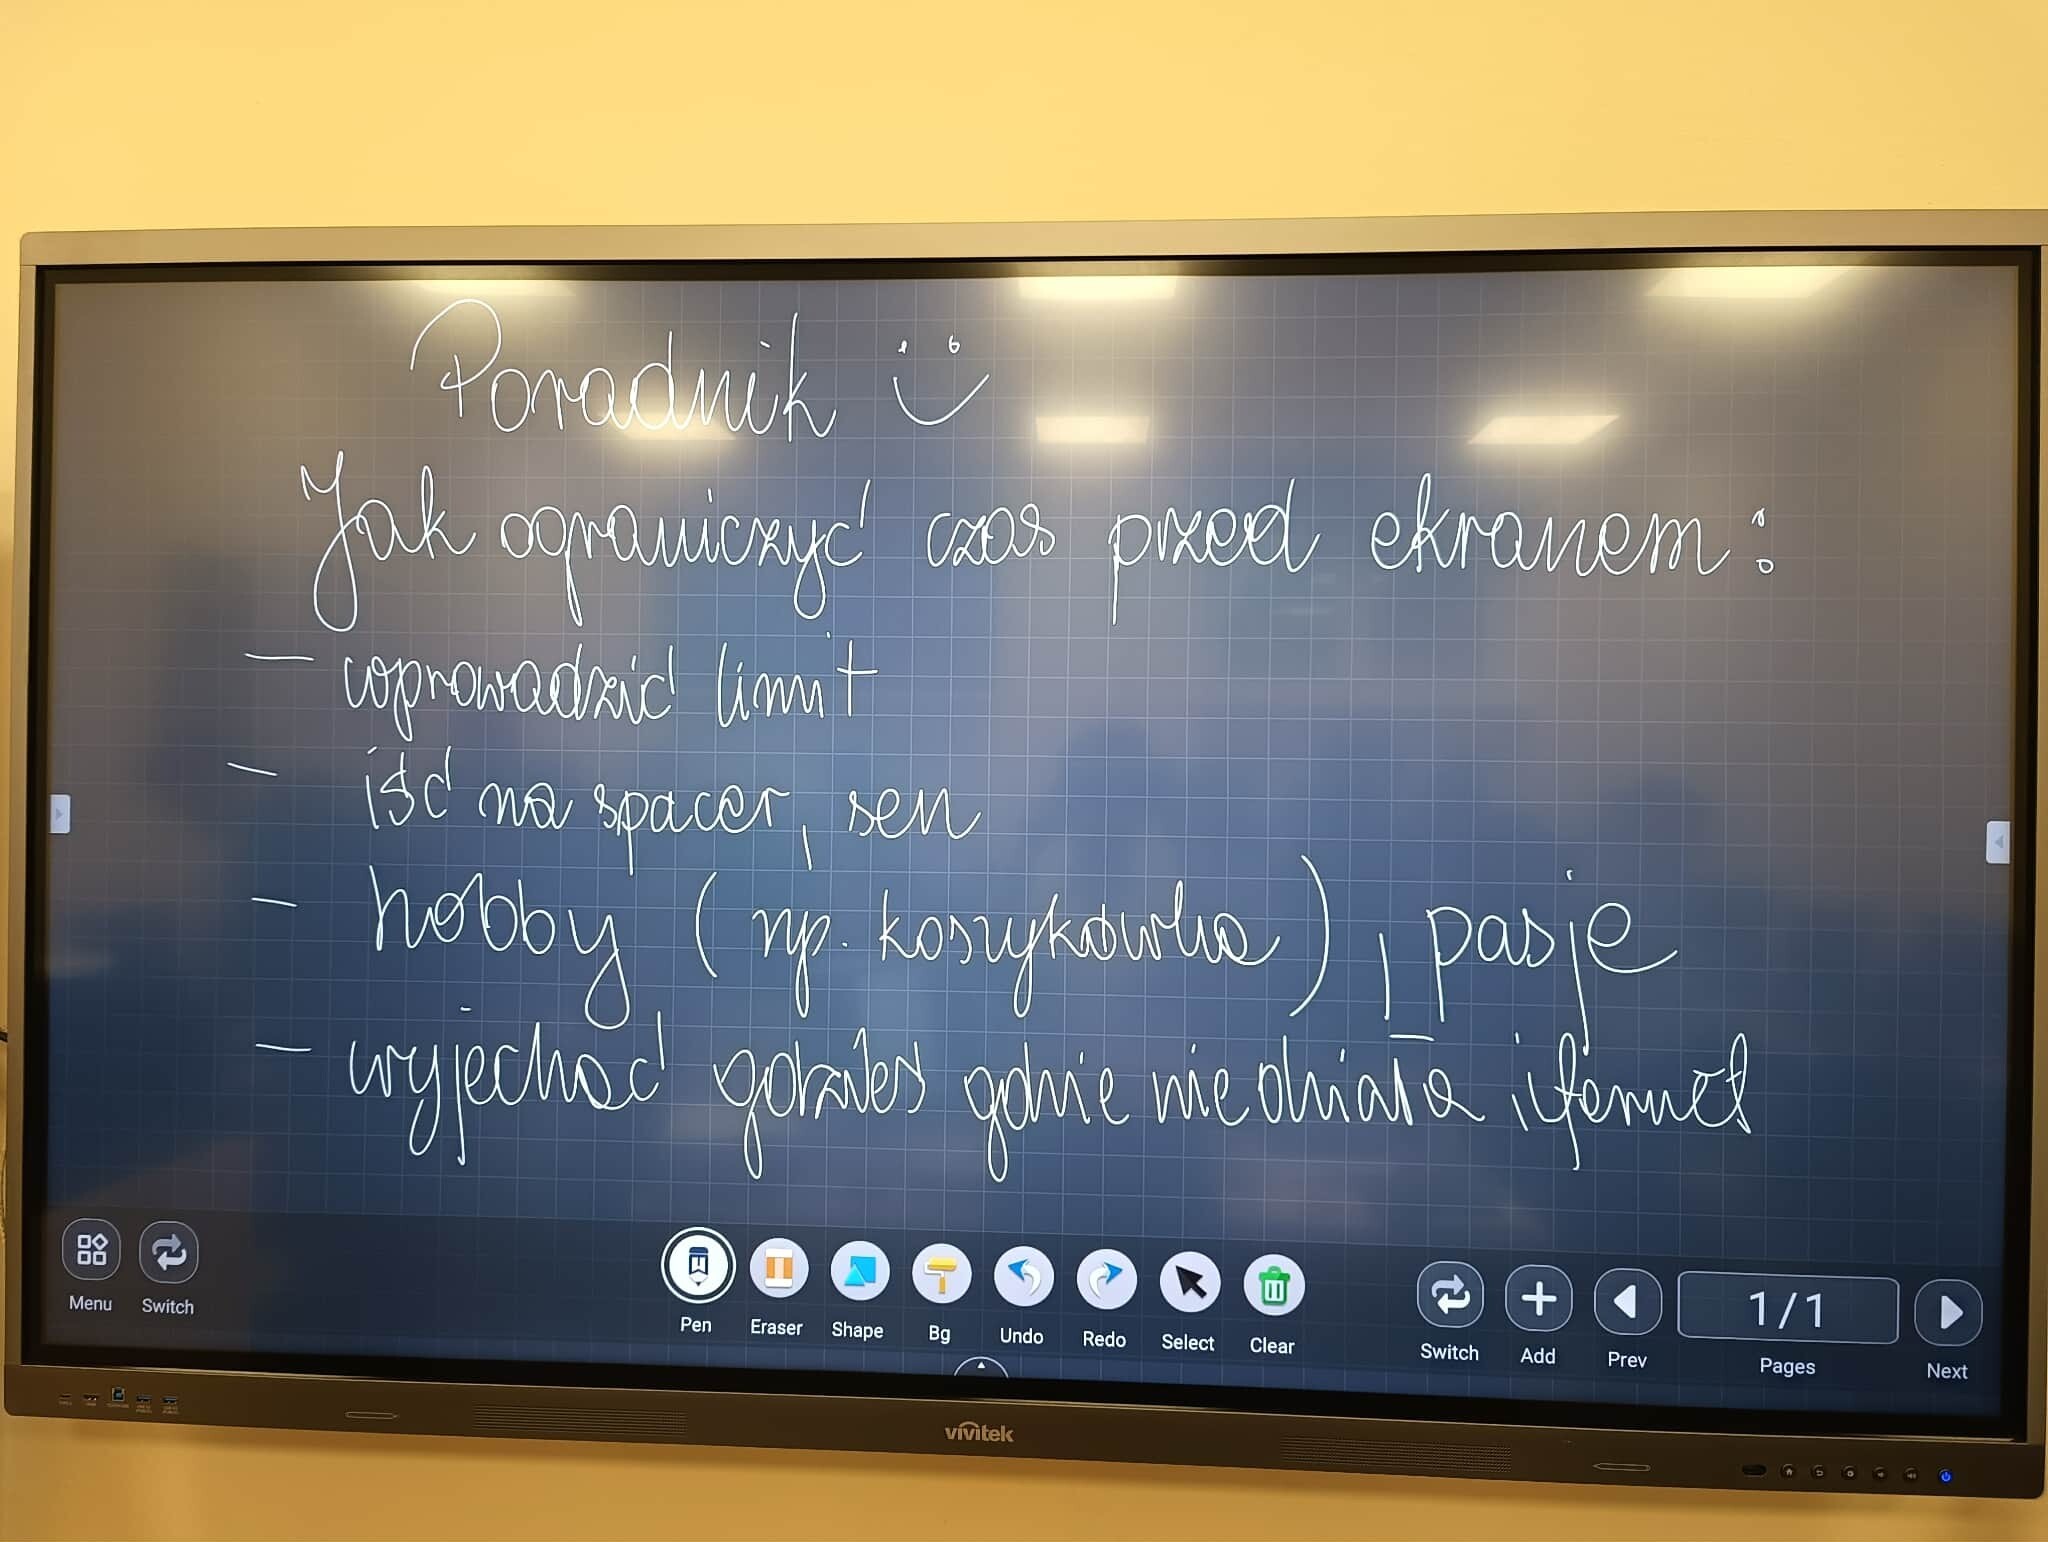 Poradnik
Jak ograniczyć czas przed ekranem:
- wprowadzić limit
- iść na spacer, sen
- hobby (np. koszykówka), pasje
- wyjechać gdzieś gdzie nie działa
Menu
Switch
Pen
Eraser
Shape
Bg
Undo
Redo
Select
Clear
Switch
Add
Prev
1/1
Pages
Next
vivitek